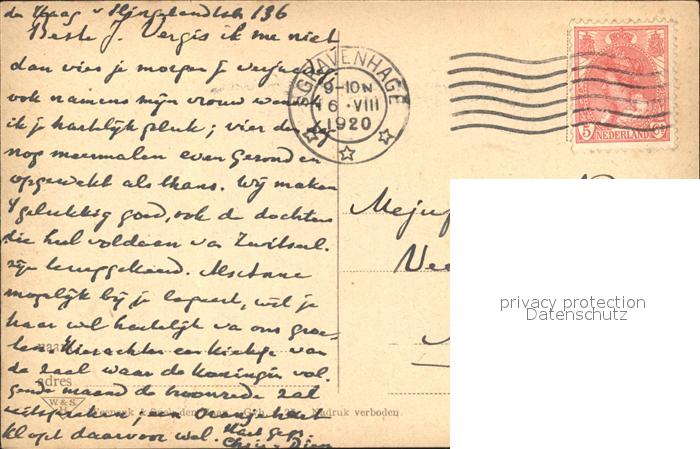 den Haag v Slingelandtstr 136
Beste J. Vergis ik me niet
dan vier je morgen je verjaardag
ook namens mijn vrouw wensch
ik je hartelijk geluk; vier den
nog meermalen even gezond en
opgewekt als thans. Wij maken
't gelukkig goed, ook de dochters
die heel voldaan van Zwitserl.
zijn teruggekeerd. Als
mogelijk bij je logeert, wil je
haar wel hartelijk van ons groe-
ten. Hierachter een kiekje van
de zaal waar de Koningin vol-
gende maand de troonrede zal
uitspreken; een Oranje hart
klopt daarvoor wel. Hart. gegr.
'S GRAVENHAGE
9-10 N
16 · VIII
1920
5 NEDERLAND Ct
Mejuf
naam
adres
W. & S.
Weenenk & Snel, den Haag Nadruk verboden.
privacy protection
Datenschutz